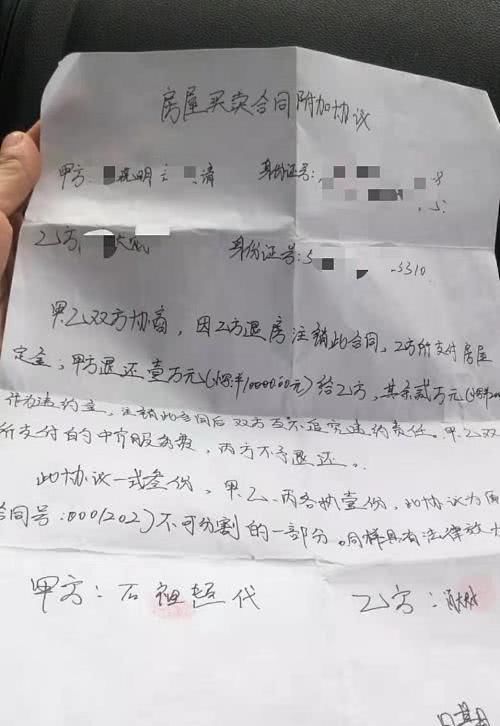 房屋买卖合同附加协议
甲方: 明 请 身份证号:
乙方: 身份证号:5 5310.
甲.乙双方协商,因乙方退房注销此合同,乙方所支付房屋
定金;甲方退还壹万元(小写:¥10000.00元)给乙方,其余贰万元(小写:¥200
作为违约金,注销此合同后双方互不追究违约责任。甲.乙双
所支付的中介服务费,丙方不予退还。
此协议一式叁份,甲.乙.丙各执壹份,此协议为
合同号:0001202)不可分割的一部分。同样具有法律效力
甲方:石祖 代 乙方:
日期